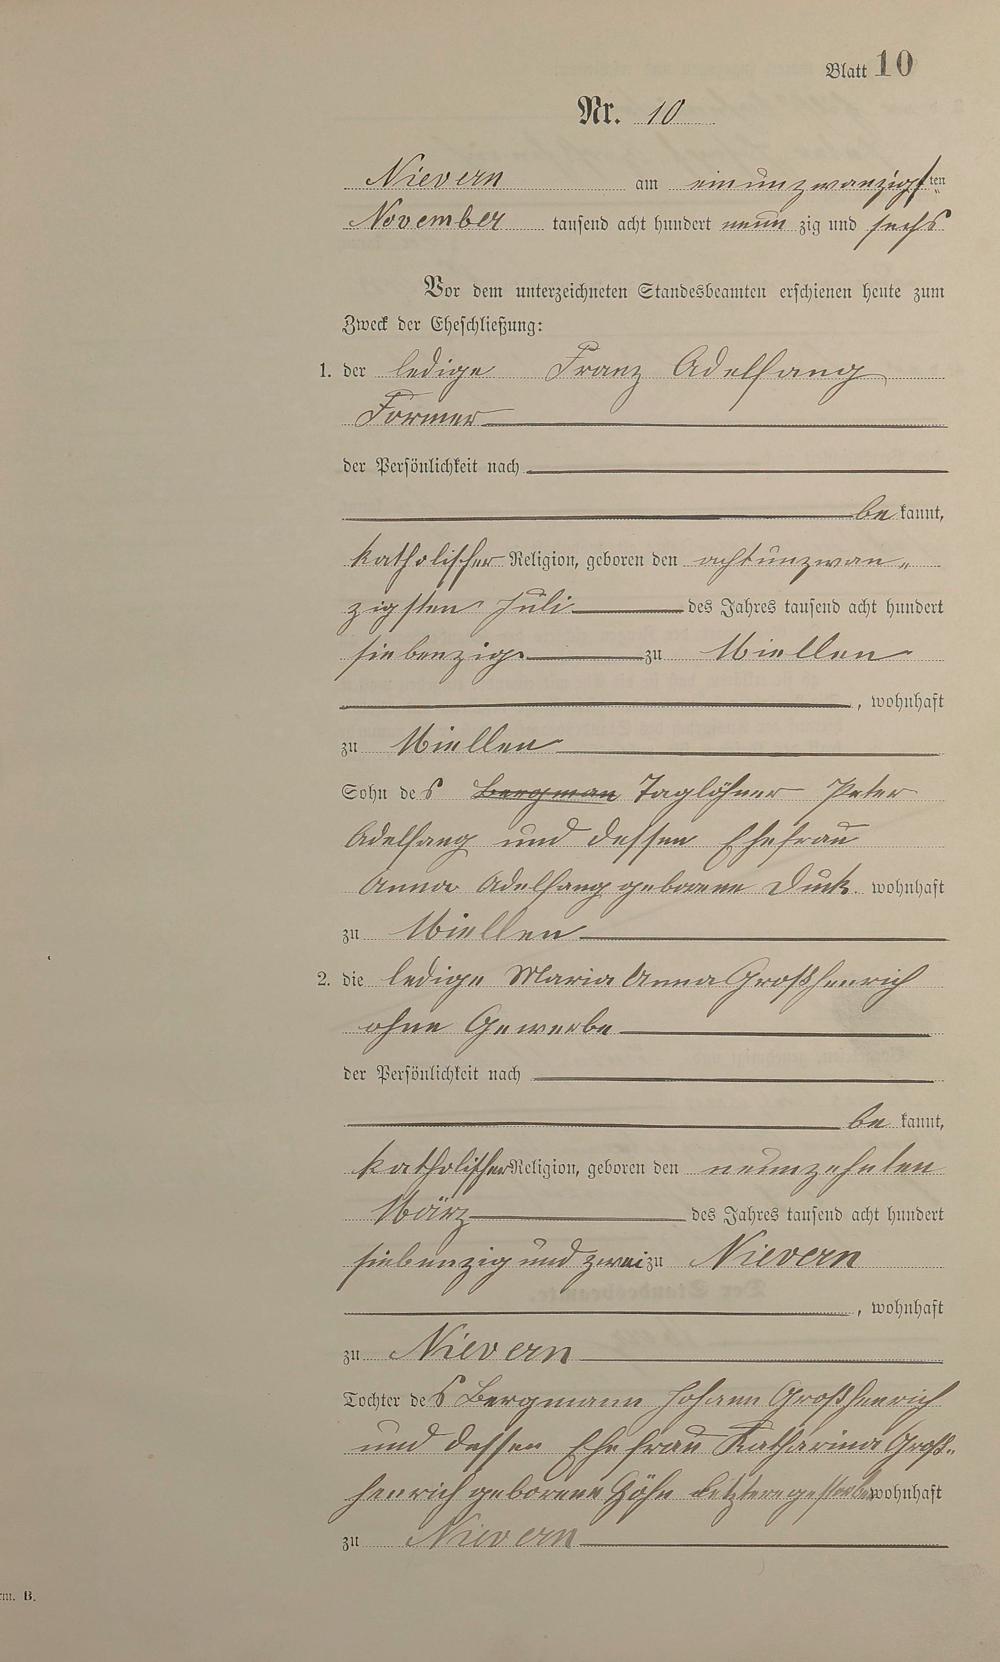 Blatt 10
Nr. 10
Nievern am einunzwanzigsten
November tausend acht hundert neun zig und sechs
Vor dem unterzeichneten Standesbeamten erschienen heute zum
Zweck der Eheschließung:
1. der ledige Franz Adelfang
Former
der Persönlichkeit nach
be kannt,
katholischer Religion, geboren den achtunzwan-
zigsten Juli des Jahres tausend acht hundert
siebenzig zu Miellen
, wohnhaft
zu Miellen
Sohn des Bergman Taglöhner Peter
Adelfang und dessen Ehefrau
Anna Adelfang geborene Duck wohnhaft
zu Miellen
2. die ledige Maria Anna Großhenrich
ohne Gewerbe
der Persönlichkeit nach
be kannt,
katholischer Religion, geboren den neunzehnten
März des Jahres tausend acht hundert
siebenzig und zwei zu Nievern
, wohnhaft
zu Nievern
Tochter des Bergmann Johann Großhenrich
und dessen Ehefrau Katharina Groß-
henrich geborene Höhn Letztere gestorben wohnhaft
zu Nievern
rm. B.